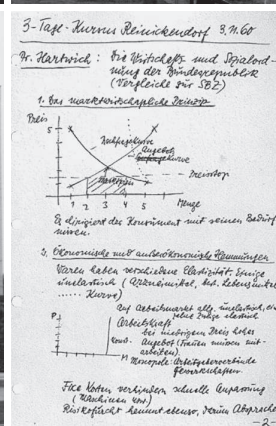 3-Tage-Kursus Reinickendorf 3.11.60
Dr. Hartwich: Die Wirtschafts und Sozialord-
nung der Bundesrepublik
(Vergleiche zur SBZ)
1. Das marktwirtschaftliche Prinzip
Preis
5
Nachfragekurve
Angebots
kurve
Preisstop
1 2 3 4 5
Menge
Es dirigiert der Konsument mit seinen Bedürf
nissen.
Ökonomische und außerökonomische Hemmungen
Waren haben verschiedene Elastizität. Einige
unelastisch (Arzneimittel, best. Lebensmittel
...... Kurve)
auf Arbeitsmarkt allg. unelastisch,
P
Arbeitskraft
bei niedrigem Preis hohes
Angebot (Frauen müssen mit-
arbeiten).
M
Monopole: Arbeitgeberverbände
Gewerkschaften
Fixe Kosten verhindern schnelle Anpassung
(Maschinen usw)
Risikofurcht hemmt ebenso, darum Absprache
-2-